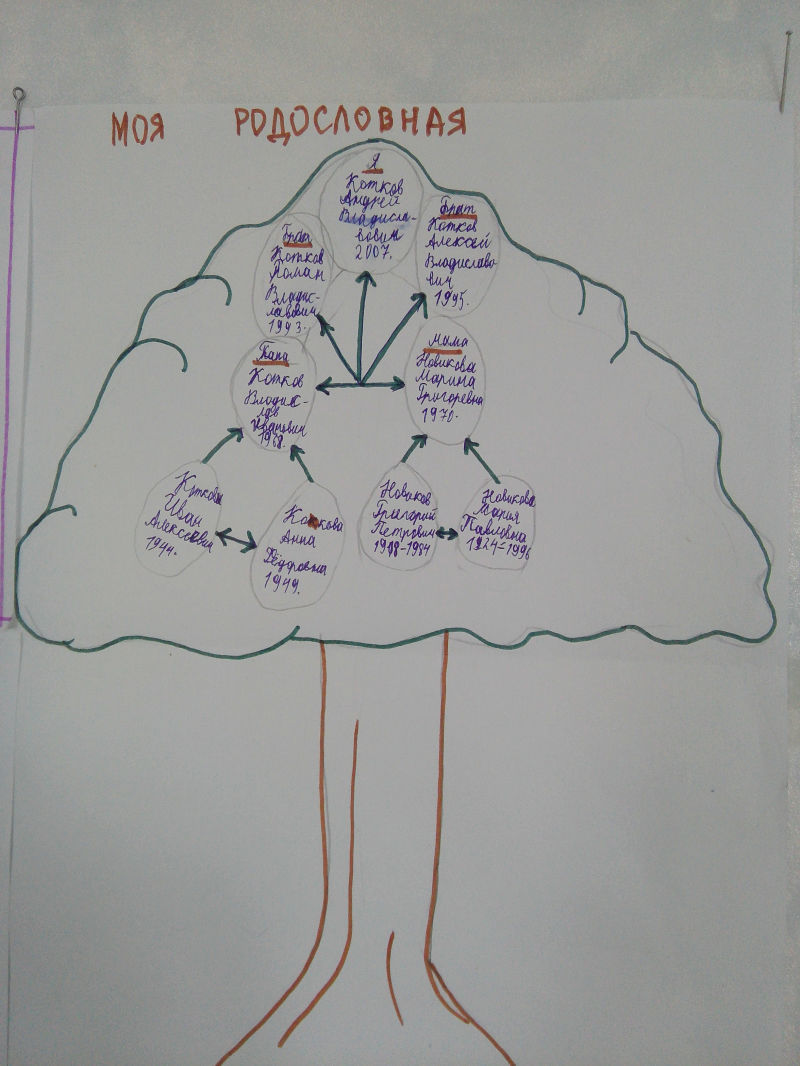 МОЯ РОДОСЛОВНАЯ
Я
Котков
Андрей
Владисла-
вович
2007.
Брат
Котков
Роман
Владис-
лавович
1993.
Брат
Котков
Алексей
Владиславо
вич
1995.
Папа
Котков
Владис-
лав
Иванович
1968.
Мама
Новикова
Марина
Григоревна
1970.
Котков
Иван
Алексеевич
1944.
Коткова
Анна
Фёдоровна
1949.
Новиков
Григорий
Петрович
Новикова
Мария
Павловна
1924-1996